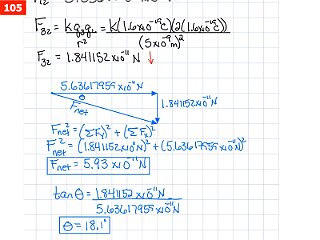 105
F₃₂ = k q₃q₂ / r² = k(1.6x10⁻¹⁹C)(2(1.6x10⁻¹⁹C)) / (5x10⁻⁹m)²
F₃₂ = 1.841152x10⁻¹¹ N ↓
5.63617955x10⁻¹¹ N
θ
1.841152x10⁻¹¹ N
Fnet
Fnet² = (ΣFy)² + (ΣFx)²
Fnet² = (1.841152x10⁻¹¹N)² + (5.63617955x10⁻¹¹N)²
Fnet = 5.93x10⁻¹¹ N
tanθ = 1.841152x10⁻¹¹N / 5.63617955x10⁻¹¹N
θ = 18.1°